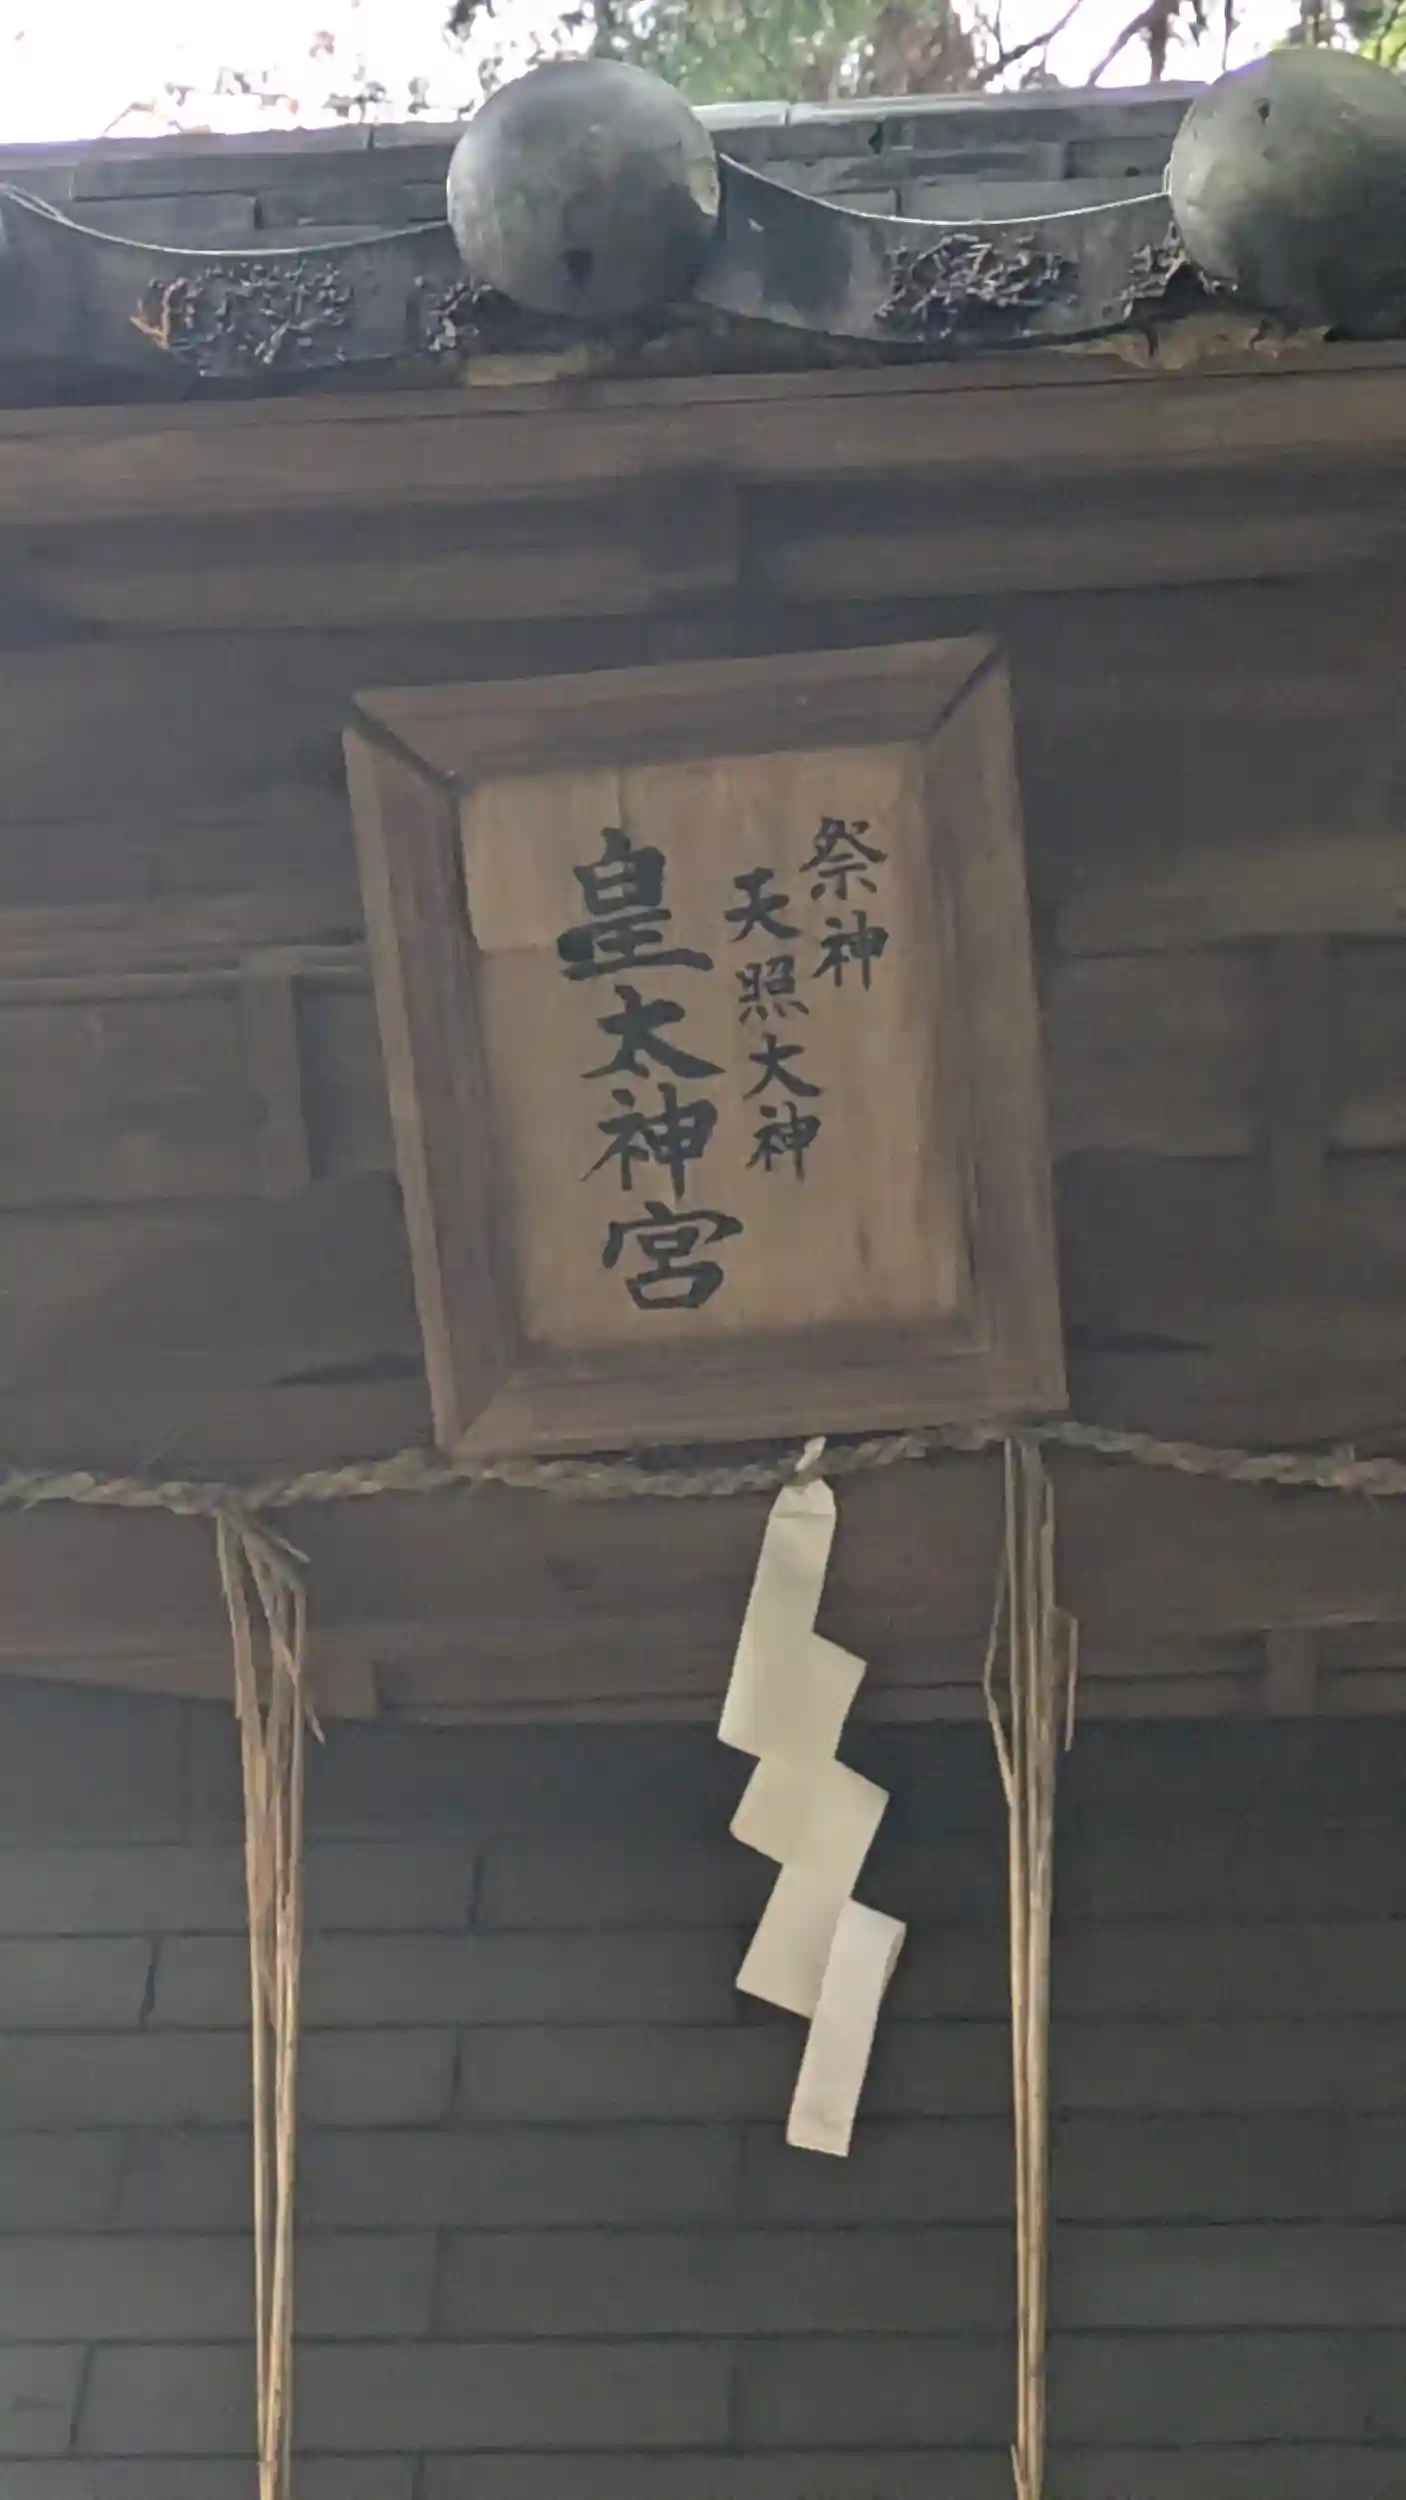 祭神
天照大神
皇太神宮